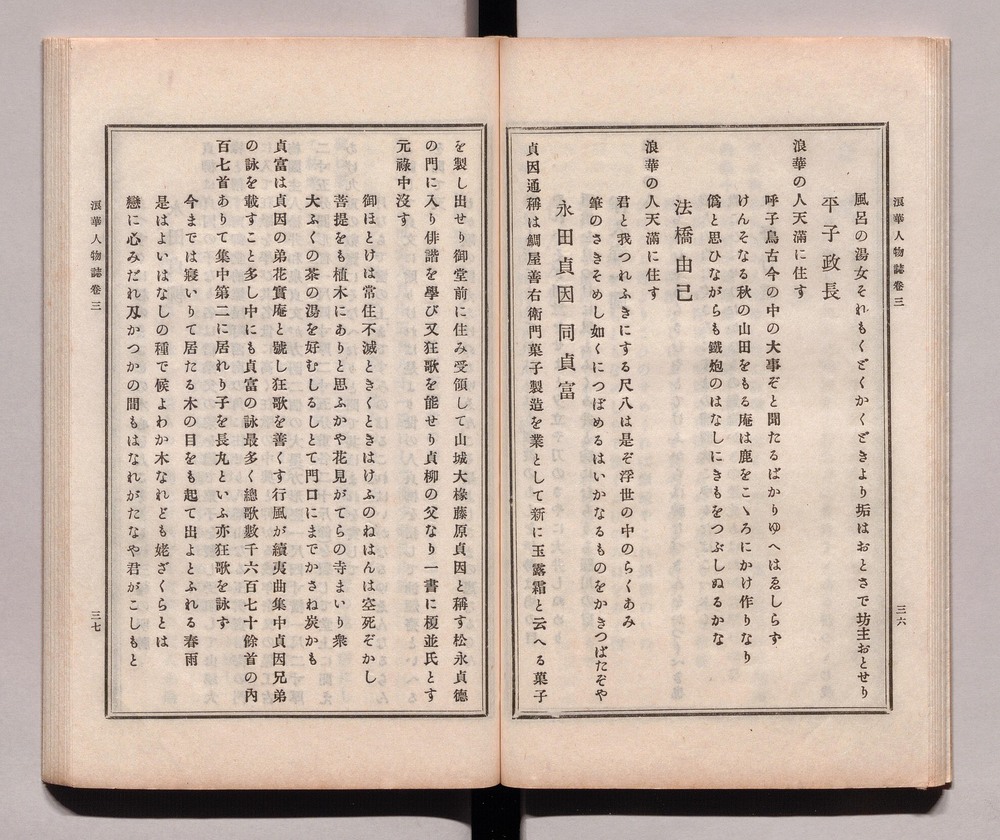 浪華人物誌卷三
三六
風呂の湯女それもくどくかくどきより垢はおとさで坊主おとせり
平子政長
浪華の人天滿に住す
呼子鳥古今の中の大事ぞと聞たるばかりゆへはゑしらず
けんそなる秋の山田をもる庵は鹿をこゝろにかけ作りなり
僞と思ひながらも鐵炮のはなしにきもをつぶしぬるかな
法橋由己
浪華の人天滿に住す
君と我つれふきにする尺八は是ぞ浮世の中のらくあみ
筆のさきそめし如くにつぼめるはいかなるものをかきつばたぞや
永田貞因 同貞富
貞因通稱は鯛屋善右衞門菓子製造を業として新に玉露霜と云へる菓子
を製し出せり御堂前に住み受領して山城大椽藤原貞因と稱す松永貞德
の門に入り俳諧を學び又狂歌を能せり貞柳の父なり一書に榎並氏とす
元祿中沒す
御ほとけは常住不滅ときくときはけふのねはんは空死ぞかし
菩提をも植木にありと思ふかや花見がてらの寺まいり衆
大ふくの茶の湯を好むしるしとて門口にまでかさね炭かも
貞富は貞因の弟花實庵と號し狂歌を善くす行風が續夷曲集中貞因兄弟
の詠を載すこと多し中にも貞富の詠最多く總歌數千六百七十餘首の內
百七首ありて集中第二に居れり子を長丸といふ亦狂歌を詠ず
今までは寢いりて居たる木の目をも起て出よとふれる春雨
是はよいはなしの種で候よわか木なれども姥ざくらとは
戀に心みだれ刄かつかの間もはなれがたなや君がこしもと
浪華人物誌卷三
三七